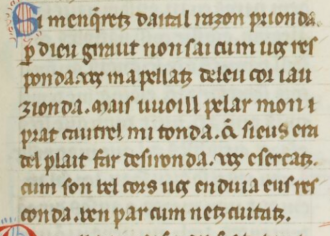 Si menq̃retz daital razon prionda.
ꝑ dieu giraut non sai cum uꝯ res
ponda. ueꝯ mapellatz de leu cor iau
zionda. mais uuoill pelar mon
prat cautrel mi tonda. Et sieus era
del plait far desironda. ueꝯ esercatz.
cum son bel cors uꝯ enduia eus res
conda. ben par cum netz cuitatz.